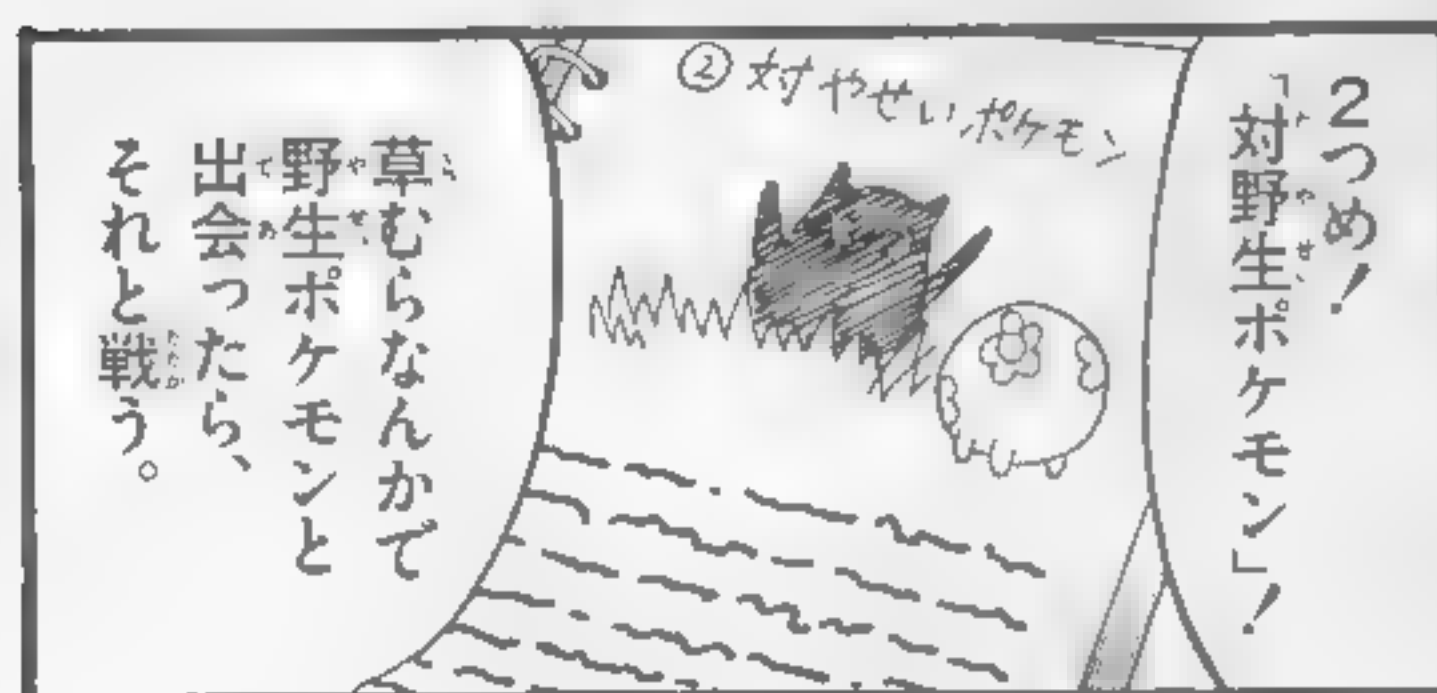 2つめ!
「対野生ポケモン」!
②対やせいポケモン
草むらなんかで
野生ポケモンと
出会ったら、
それと戦う。